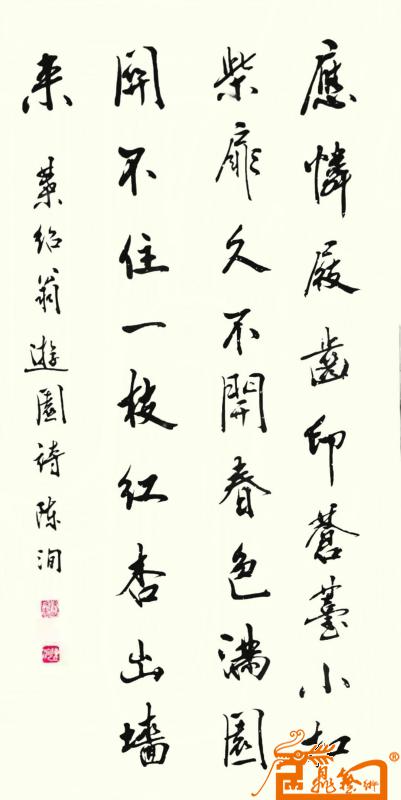 應憐屐齒印蒼薹小扣
柴扉久不開春色滿園
關不住一枝紅杏出墻
来
葉紹翁遊園詩陳洵